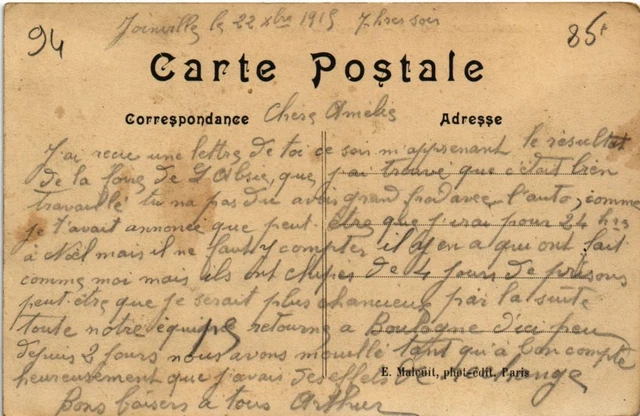 94
Joinville le 22 xbre 1915 7 hres soir
85
Carte Postale
Correspondance Chère Amélie Adresse
J'ai recue une lettre de toi ce soir m'apprenant le résultat
de la foire de L'Absie, que j'ai trouvé que c'était bien
travaillé tu na pas du avoir grand froid avec l'auto, comme
je t'avait annoncée que peut être que j'irai pour 24 hres
à Nöel mais il ne faut y compter il y en a qui ont fait
comme moi mais ils ont chipés de 4 jours de prisons
peut-être que je serait plus chanceux par la suite
toute notre équipe retourne a Boulogne d'ici peu
depuis 2 jours nous avons mouillé tant qu'à bon compte
heureusement que j'avais des effets de rechange
E. Malcuit, phot-édit, Paris
Bons baisers a tous Arthur